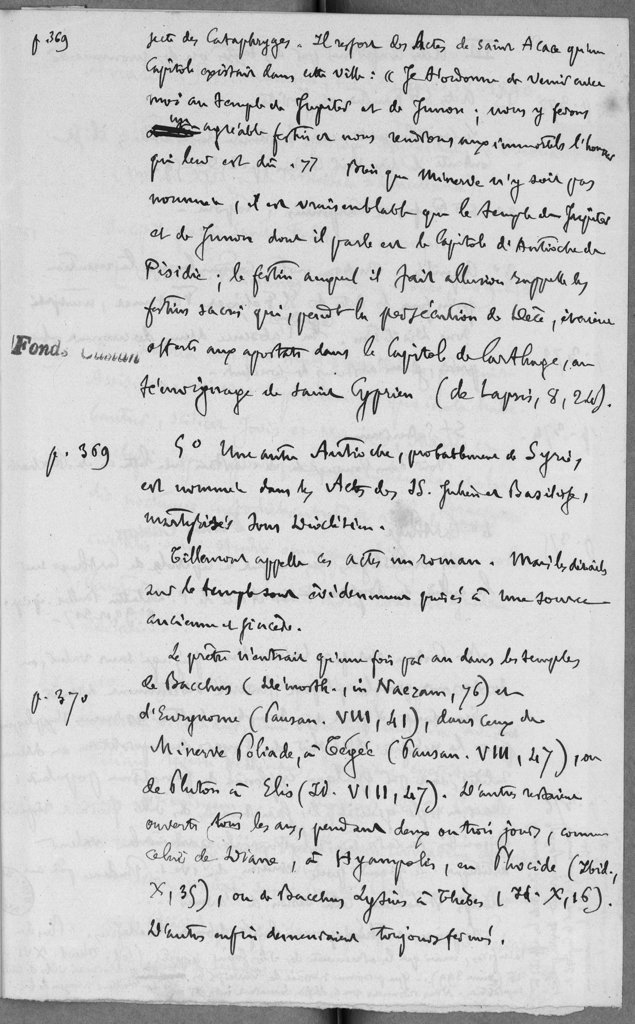 p. 369
secte des Cataphryges. Il ressort des Actes de saint Acace qu'un
Capitole existait dans cette ville : « Je t'ordonne de venir avec
moi au temple de Jupiter et de Junon ; nous y ferons
un agréable festin et nous rendrons aux immortels l'honneur
qui leur est dû. » Bien que Minerve n'y soit pas
nommée, il est vraisemblable que le temple de Jupiter
et de Junon dont il parle est le Capitole d'Antioche de
Pisidie ; le festin auquel il fait allusion rappelle les
festins sacrés qui, pendt la persécution de Dèce, étaient
Fonds Cumont
offerts aux apostats dans le Capitole de Carthage, au
témoignage de saint Cyprien (de Lapsis, 8, 24).
p. 369
5° Une autre Antioche, probablement de Syrie,
est nommée dans les Actes des SS. Julien et Basilisse,
martyrisés sous Dioclétien.
Tillemont appelle ces actes un roman. Mais les détails
sur le temple sont évidemment puisés à une source
ancienne et sincère.
Le prêtre n'entrait qu'une fois par an dans les temples
p. 370
de Bacchus (Démosth., in Naezam, 76) et
d'Eurynome (Pausan. VIII, 41), dans ceux de
Minerve Poliade, à Tégée (Pausan. VIII, 47), ou
de Pluton à Elis (Id. VIII, 47). D'autres étaient
ouverts tous les ans, pendant deux ou trois jours, comme
celui de Diane, à Hyampolis, en Phocide (Ibid.,
X, 35), ou de Bacchus Lysius à Thèbes (Id. X, 16).
D'autres enfin demeuraient toujours fermés.